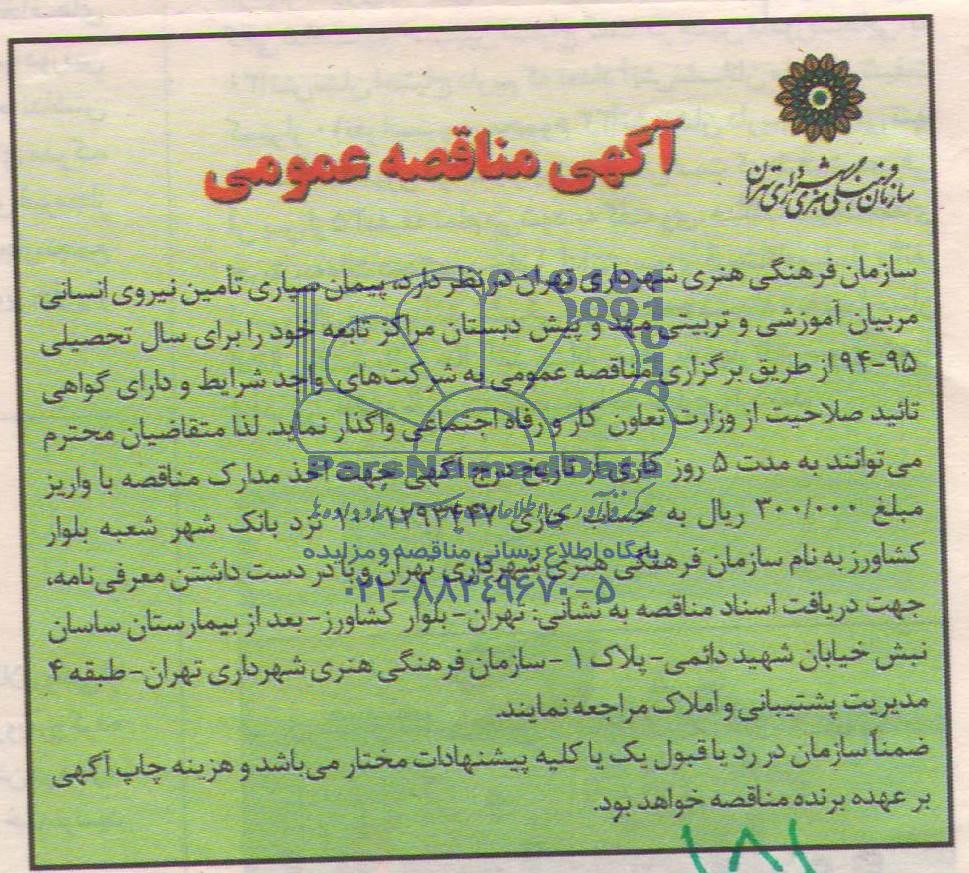 سازمان فرهنگی هنری شهرداری تهران
آگهی مناقصه عمومی
سازمان فرهنگی هنری شهرداری تهران در نظر دارد، پیمان سپاری تأمین نیروی انسانی
مربیان آموزشی و تربیتی مهد و پیش دبستان مراکز تابعه خود را برای سال تحصیلی
۹۴-۹۵ از طریق برگزاری مناقصه عمومی به شرکت‌های واجد شرایط و دارای گواهی
تائید صلاحیت از وزارت تعاون کار و رفاه اجتماعی واگذار نماید. لذا متقاضیان محترم
می‌توانند به مدت ۵ روز کاری از تاریخ درج آگهی جهت اخذ مدارک مناقصه با واریز
مبلغ ۳۰۰/۰۰۰ ریال به حساب جاری نزد بانک شهر شعبه بلوار
کشاورز به نام سازمان فرهنگی هنری شهرداری تهران و با در دست داشتن معرفی‌نامه،
جهت دریافت اسناد مناقصه به نشانی: تهران- بلوار کشاورز- بعد از بیمارستان ساسان
نبش خیابان شهید دائمی- پلاک ۱ -سازمان فرهنگی هنری شهرداری تهران- طبقه ۴
مدیریت پشتیبانی و املاک مراجعه نمایند.
ضمناً سازمان در رد یا قبول یک یا کلیه پیشنهادات مختار می‌باشد و هزینه چاپ آگهی
بر عهده برنده مناقصه خواهد بود.
ParsNamadData
پایگاه اطلاع رسانی مناقصه و مزایده
۰۲۱-۸۸۳۴۹۶۷۰-۵
۱۸۱